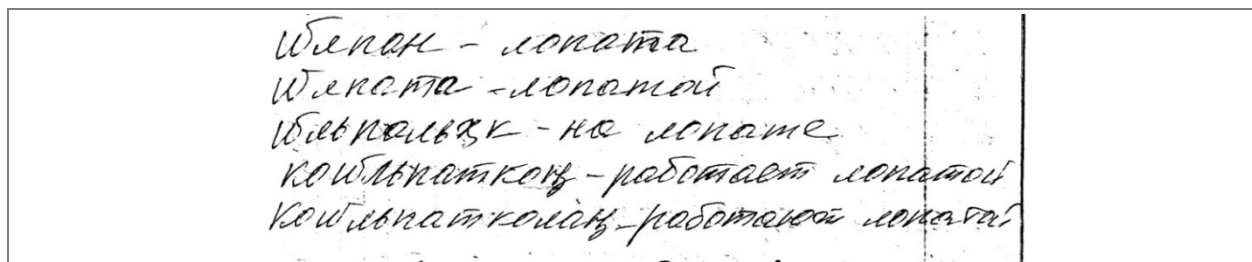 ӥлпан - лопата
ӥлпата - лопатой
ӥльпальӽк - на лопате
коӥльпаткоӊ - работает лопатой
Коӥльпатколаӊ - работают лопатай